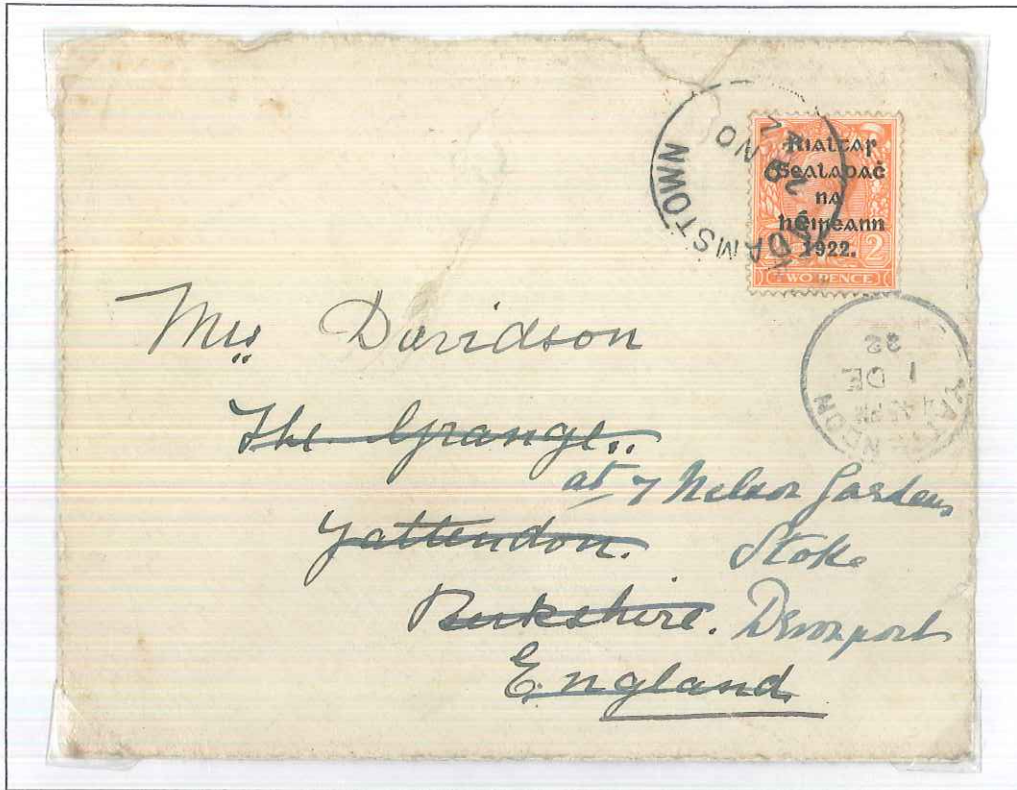 ADAMSTOWN
NO
Rialtas
Sealadaċ
na
hÉireann
1922.
2
TWO PENCE
YATTENDON
PM
1 DE
22
Mrs Davidson
The Grange.
at 7 Nelson Gardens
Yattendon. Stoke
Berkshire. Devonport
England